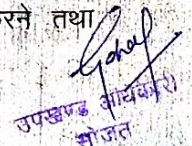 रने तथा
उपखण्ड अधिकारी
सोजत